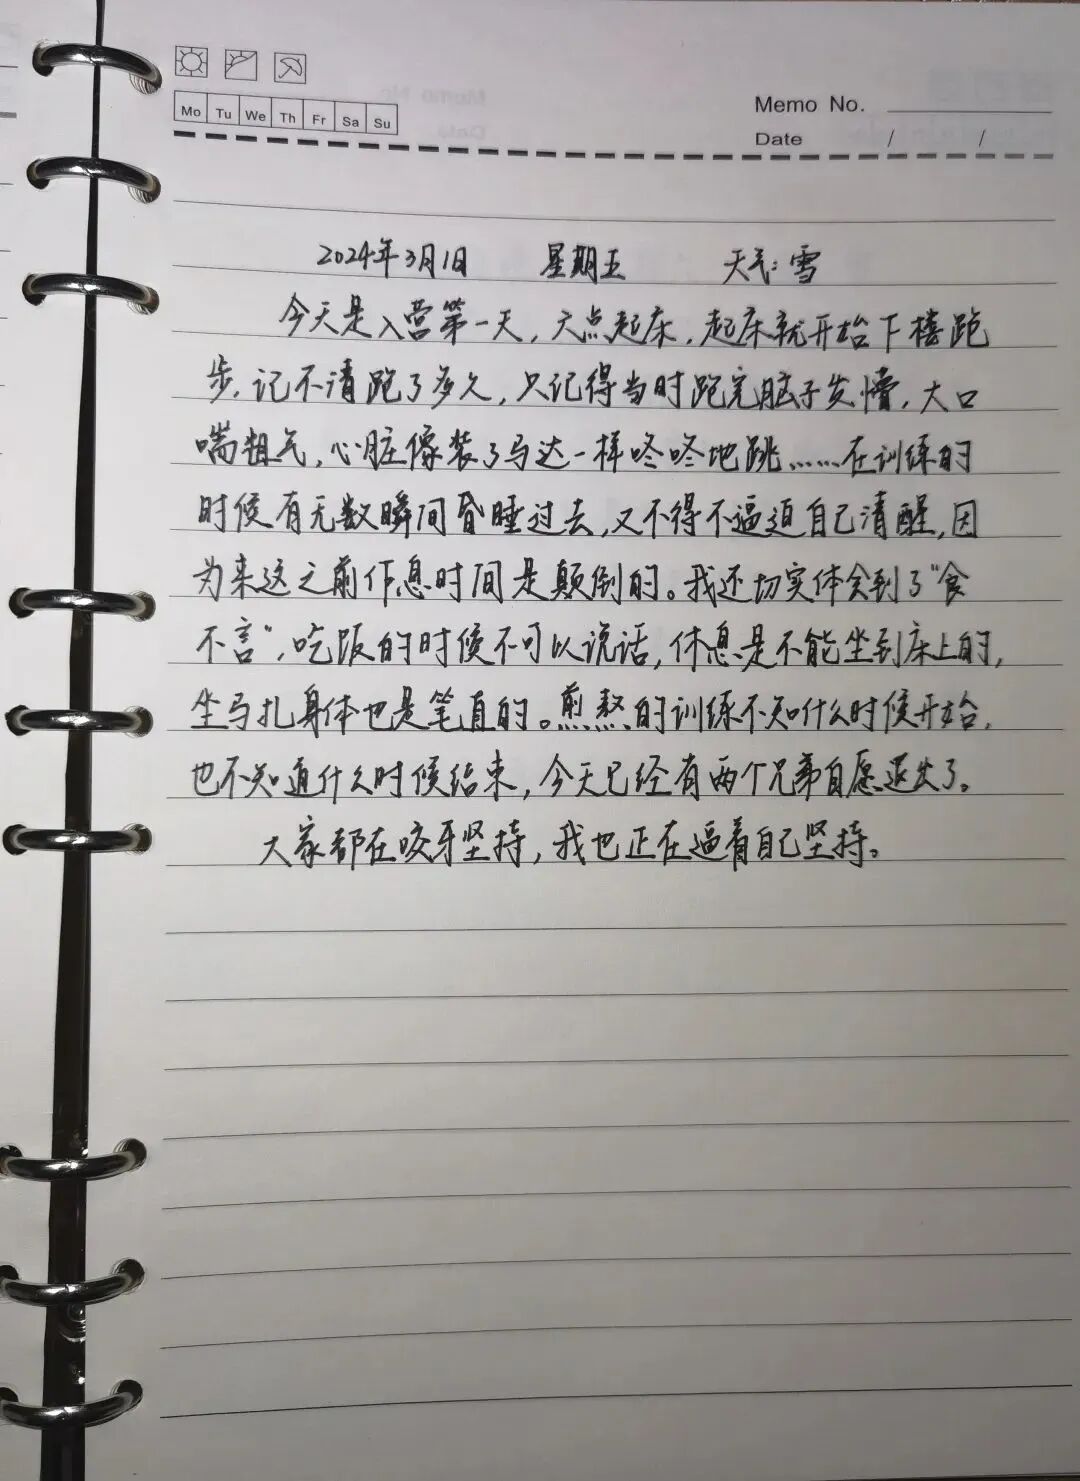 Mo Tu We Th Fr Sa Su
Memo No.
Date / /
2024年3月1日 星期五 天气：雪
今天是入营第一天，六点起床，起床就开始下楼跑
步，记不清跑了多久，只记得当时跑完脑子发懵，大口
喘粗气，心脏像装了马达一样咚咚地跳……在训练的
时候有无数瞬间昏睡过去，又不得不逼迫自己清醒，因
为来这之前作息时间是颠倒的。我还切实体会到了“食
不言”，吃饭的时候不可以说话，休息是不能坐到床上的，
坐马扎身体也是笔直的。煎熬的训练不知什么时候开始，
也不知道什么时候结束，今天已经有两个兄弟自愿退出了。
大家都在咬牙坚持，我也正在逼着自己坚持。